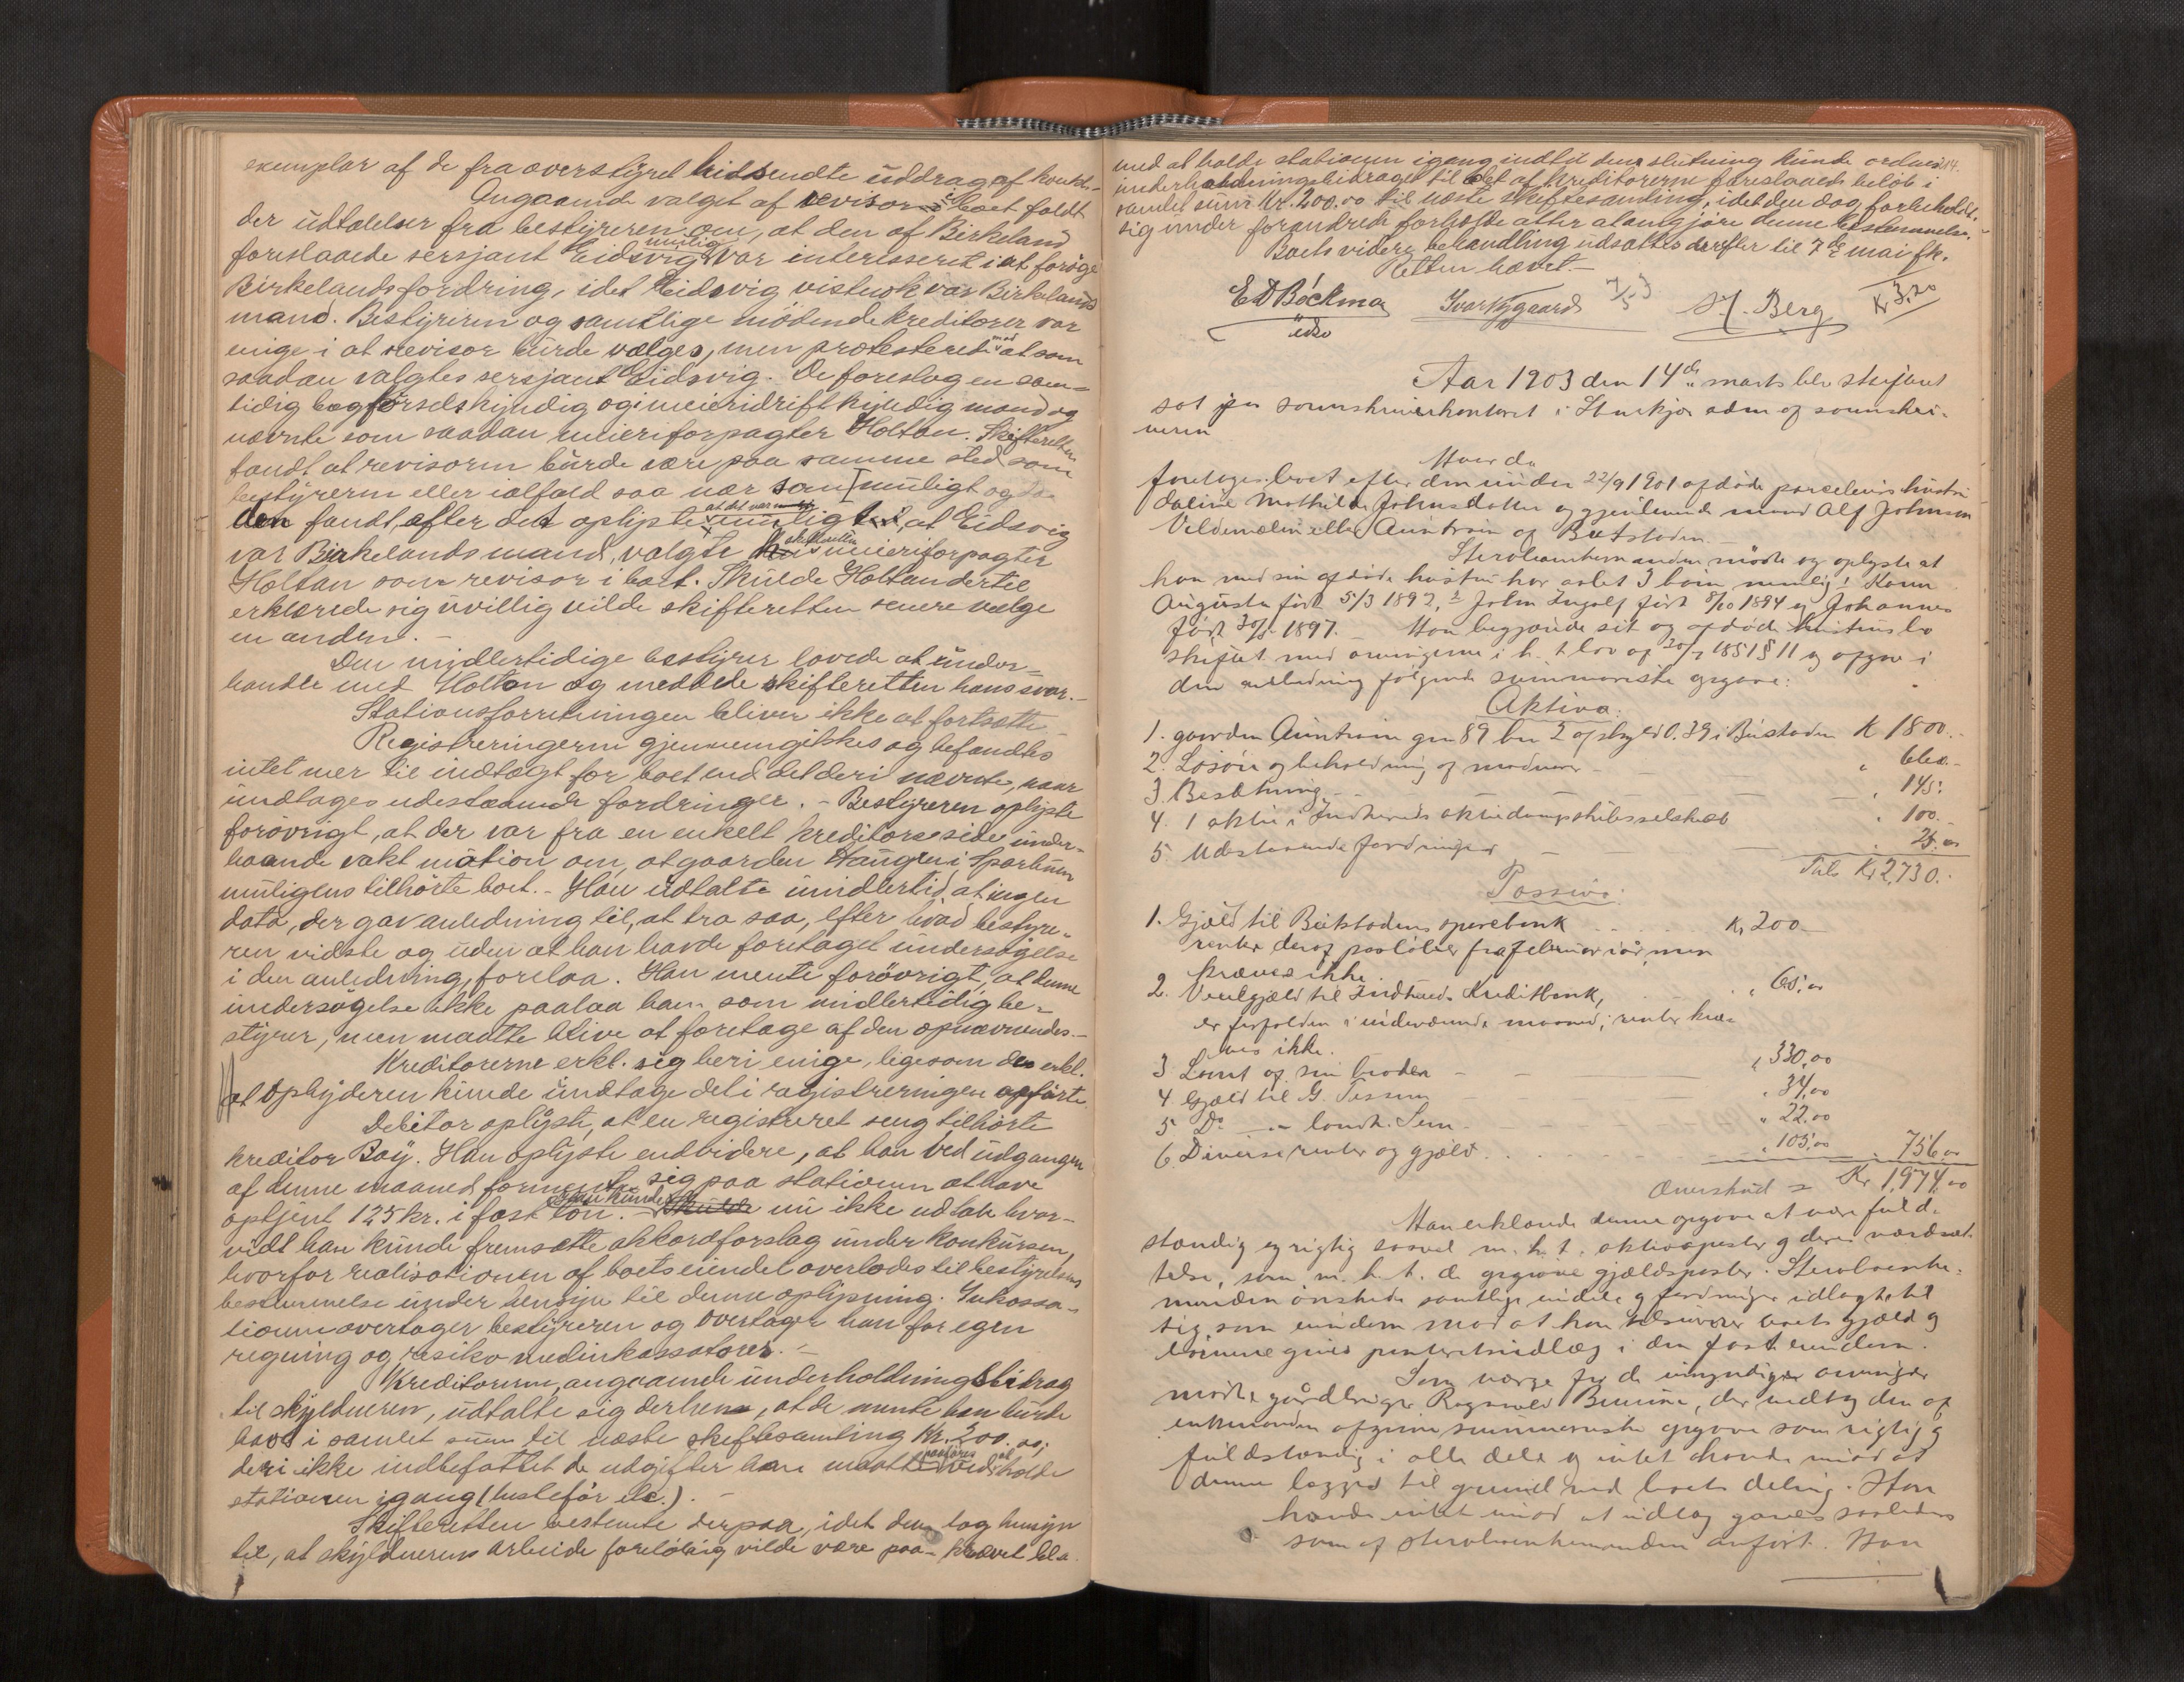 exemplar af de fra overstyret hidsendte uddrag af konkl.-
Angaaende valget af revisor i boet faldt
der udtalelser fra bestyreren om, at den af Birkeland
foreslaaede sersjant Eidsvig mulig var interesseret i at foröge
Birkelands fordring, idet Eidsvig vistnok var Birkelands
mand. Bestyreren og samtlige mödende kreditorer var
enige i at revisor burde vælges, men protesterede mod at som
saadan valgtes sersjant Eidsvig. De foreslog en sam-
tidig bogförselskyndig og i meieridrift kyndig mand og
nævnte som saadan meieriforpagter Holtan. Skifteretten
fandt at revisoren burde være paa samme sted som
bestyreren eller ialfald saa nær som muligt og da
den fandt, efter det oplyste, at det var muligt, at Eidsvig
var Birkelands mand, valgte skifteretten meieriforpagter
Holtan som revisor i boet. Skulde Holtan dertil
erklærede sig uvillig vilde skifteretten senere vælge
en anden. -
Den midlertidige bestyrer lovede at under-
handle med Holtan og meddele skifteretten hans svar.-
Stationsforretningen bliver ikke at fortsætte.
Registreringerne gjennemgikkes og befandtes
intet mer til indtægt for boet end det deri nævnte, naar
undtages udestaaende fordringer. - Bestyreren oplyste
forövrigt, at der var fra en enkelt kreditors side under-
haande vakt mótion om, at gaarden Haugen i Sparbuen
muligens tilhörte boet. - Han udtalte imidlertid at ingen
data, der gav anledning til, at tro saa, efter hvad bestyre-
ren vidste og uden at han havde foretaget undersögelse
i den anledning, forelaa. Han mente forövrigt, at denne
undersögelse ikke paalaa ham som midlertidig be-
styrer, men maatte blive at foretage af den opnævnendes.-
Kreditorerne erkl. sig heri enige, ligesom de erkl.
at opbyderen kunde undtage det i registreringen opförte.
Debitor oplyste, at en registreret seng tilhörte
kreditor Böy. Han oplyste endvidere, at han ved udgangen
af denne maaned formente sig paa stationen at have
optjent 125 kr. i fast lön. - Han kunde nu ikke udtale hvor-
vidt han kunde fremsætte akkordforslag under konkursen,
hvorfor realisationen af boets eiendel overlodes til bestyrelsens
bestemmelse under hensyn til denne oplysning. Inkassa-
tionen overtager bestyreren og overtager han for egen
regning og risiko medinkassatorer. -
Kreditorerne, angaaende underholdningsbidrag
til skyldneren, udtalte sig derhen, at de mente han burde
have i samlet sum til næste skiftesamling Kr. 200.00;
deri ikke indbefattet de udgifter han maatte paaföres ved at holde
stationen igang (hestefór etc.). -
Skifteretten bestemte derpaa, idet den tog hensyn
til, at skyldnerens arbeide forelöbig vilde være paa-krævet bl.a.
med at holde stationen igang indtil dens slutning kunde ordnes,
underholdningsbidraget til det af kreditorerne foreslaaede belöb i
samlet sum Kr. 200.00 til næste skiftesamling, idet den dog forbeholdt
sig under forandrede forholde atter at omgjöre denne bestemmelse.
Boets videre behandling udsattes derefter til 7de mai fk.
Retten hævet.-
E D Böckman Ivar Nygaard 7/5 3 H. Berg Kr 3,20
udso
Aar 1903 den 14de marts blev skifteret
sat paa sorenskriverkontoret i Stenkjær adm. af sorenskri-
veren
Hvorda
foretoges boet efter den under 22/9 1901 afdöde parcelleiers hustru
Daline Mathilde Johnsdatter og gjenlevende mand Alf Johnsen
Veldemelen eller Auntrøen af Beitstaden.
Sterboenkemanden mödte og oplyste at
han med sin afdöde hustru har avlet 3 börn nemlig 1 Karen
Augusta född 5/3 1892, 2 John Ingolf född 8/10 1894 og Johannes
född 30/5 1897. - Han begjærede sit og afdöde hustrus bo
skiftet med arvingerne i h. t. lov af 30/7 1851 § 11 og afgav i
den anledning følgende summariske opgave:
Aktiva:
1. gaarden Auntrøen gno 89 bno 2 af skyld 0.39 i Beitstaden K 1800.-
2. Lösöre og beholdning af madvarer - " 660.-
3. Besætning - " 145:
4. 1 aktie i Indherreds aktiedampskibsselskab " 100.-
5. Udestaaende fordringer - 25.00
Tils Kr 2,730.-
Passiva:
1. Gjæld til Beitstadens sparebank Kr 200-
renter deraf paalöber fra februar iaar, men
kræves ikke.
2. Vexelgjæld til Indherreds Kreditbank, " 65,00
er forfalden i indeværende maaned; renter kræ-
ves ikke.
3 Laant af sin broder - " 330.00
4. Gjæld til G. Tessem - " 34,00
5 Do - " - landh. Sem - " 22.00
6. Diverse renter og gjæld " 105.00 " 756.00
Overskud = Kr 1,974.00
Han erklærede denne opgave at være fuld-
stændig og rigtig saavel m. h. t. aktivaposter og deres værdsæt-
telse, som m. h. t. de opgivne gjældsposter. Sterboenke-
manden önskede samtlige eiendele og fordringer udlagte til
sig som eiendom mod at han tilsvarer boets gjæld og
börnene gives panteretsudlæg i den faste eiendom.
Som værge for de umyndige arvinger
mödte gårdbruger Ragnvald Benum, der vedtog den af
enkemanden afgivne summariske opgave som rigtig og
fuldstændig i alle dele og intet havde imod at
denne lægges til grund ved boets deling. Han
havde intet imod at udlæg gaves saaledes
som af sterboenkemanden anfört. Han